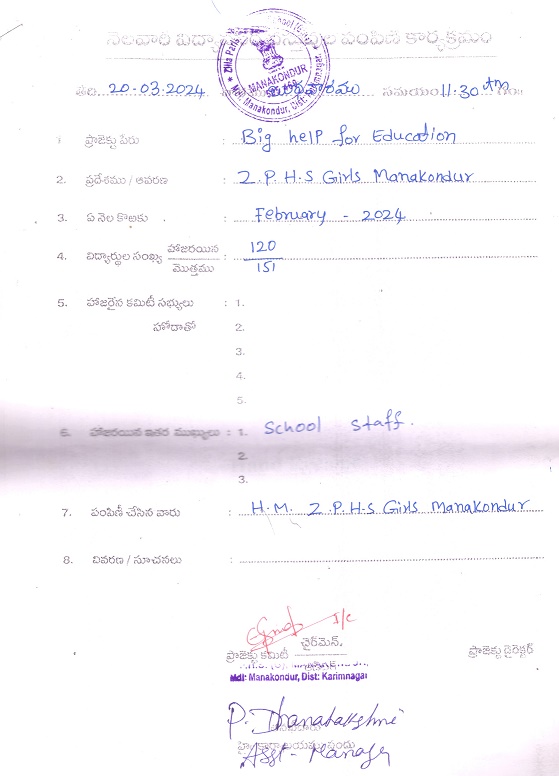 నెలవారి పంపిణీ కార్యక్రమం
తేది. 20-03-2024 సమయం 11:30 am
MANAKONDUR
Mdl: Manakondur, Dist: Karimnagar.
1 ప్రాజెక్టు పేరు : Big help for Education
2. ప్రదేశము / ఆవరణ : Z.P.H.S Girls Manakondur
3. ఏ నెల కొఱకు : February - 2024
4. విద్యార్థుల సంఖ్య హాజరయిన : 120
మొత్తము 151
5. హాజరైన కమిటీ సభ్యులు : 1.
హోదాతో 2.
3.
4.
5.
6. హాజరయిన ఇతర ముఖ్యులు : 1. School staff.
2.
3.
7. పంపిణీ చేసిన వారు : H.M. Z.P.H.S Girls Manakondur
8. వివరణ / సూచనలు :
I/c
చైర్‌మెన్.
ప్రాజెక్టు కమిటీ ప్రాజెక్టు డైరెక్టర్
Mdl: Manakondur, Dist: Karimnagar
P. Dhanalakshmi
Asst-Manager